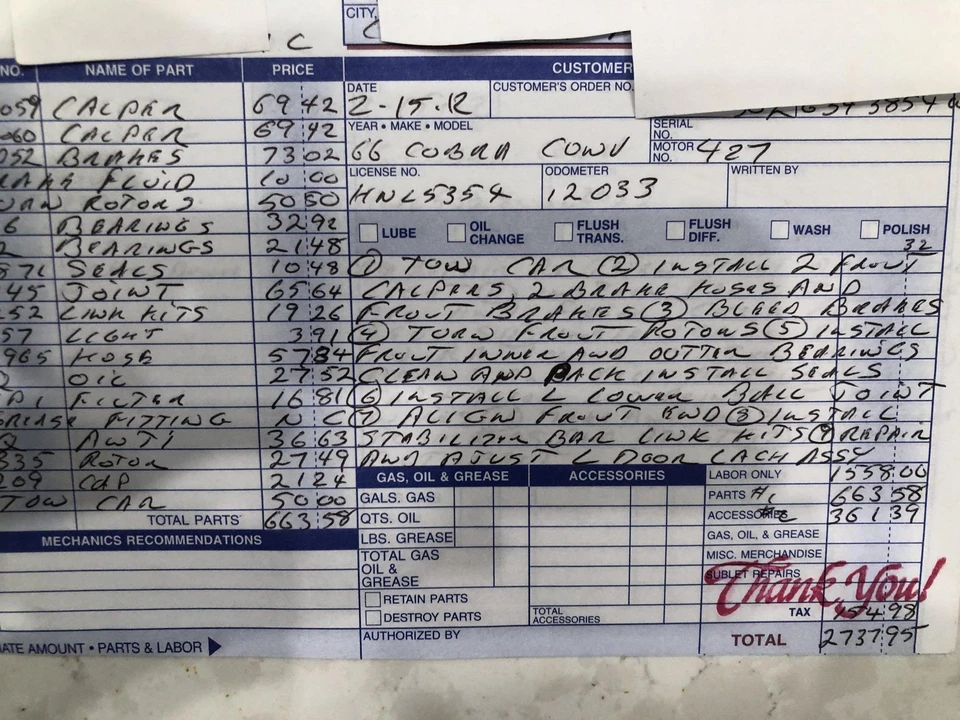 CITY,
C
NO. NAME OF PART PRICE CUSTOMER
059 CALPER 69 42
060 CALPER 69 42
052 BRAKES 73 02
RAKE FLUID 10 00
URN ROTORS 50 50
6 BEARINGS 32 92
2 BEARINGS 21 48
571 SEALS 10 48
45 JOINT 65 64
252 LINK KITS 19 26
57 LIGHT 3 91
965 HOSE 57 84
OIL 27 52
FILTER 16 81
FITTING N C
Q ANTI 36 63
335 ROTOR 27 49
209 CAP 21 24
TOW CAR 50 00
TOTAL PARTS 663 58
MECHANICS RECOMMENDATIONS
ATE AMOUNT • PARTS & LABOR
DATE 2-15-12
CUSTOMER'S ORDER NO.
YEAR • MAKE • MODEL 66 COBRA CONV
SERIAL NO.
MOTOR NO. 427
LICENSE NO. HNL5354
ODOMETER 12033
WRITTEN BY
LUBE OIL CHANGE FLUSH TRANS. FLUSH DIFF. WASH POLISH
32
① TOW CAR ② INSTALL 2 FRONT
CALPERS, 2 BRAKE HOSES AND
FRONT BRAKES ③ BLEED BRAKES
④ TURN FRONT ROTORS ⑤ INSTALL
FRONT INNER AND OUTTER BEARINGS
CLEAN AND PACK INSTALL SEALS
⑥ INSTALL L LOWER BALL JOINT
⑦ ALIGN FRONT END ⑧ INSTALL
STABILIZER BAR LINK KITS ⑨ REPAIR
AND AJUST L DOOR LACH ASSY
GAS, OIL & GREASE ACCESSORIES
GALS. GAS
QTS. OIL
LBS. GREASE
TOTAL GAS OIL & GREASE
RETAIN PARTS
DESTROY PARTS
TOTAL ACCESSORIES
AUTHORIZED BY
LABOR ONLY 1558 00
PARTS #1 663 58
ACCESSORIES #2 361 39
GAS, OIL & GREASE
MISC. MERCHANDISE
SUBLET REPAIRS
Thank You!
TAX 154 98
TOTAL 2737 95